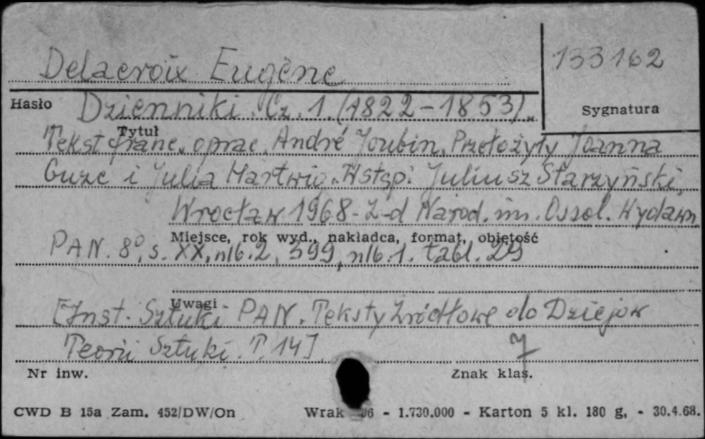 133162
Delacroix Eugène
Hasło Dzienniki. Cz. 1. (1822-1853).
Sygnatura
Tytuł
Tekst franc. oprac. André Joubin. Przełożyły Joanna
Guze i Julia Hartwig. Wstęp: Juliusz Starzyński.
Wrocław 1968. Z-d Narod. im. Ossol. Wydawn.
Miejsce, rok wyd., nakładca, format, objętość
PAN. 8°, s. XX, nlb. 2, 599, nlb. 1. tabl. 29
Uwagi
[Inst. Sztuki PAN. Teksty Źródłowe do Dziejów
Teorii Sztuki. T. 14]
7
Nr inw. Znak klas.
CWD B 15a Zam. 452/DW/On Wrak 06 - 1.730.000 - Karton 5 kl. 180 g. - 30.4.68.